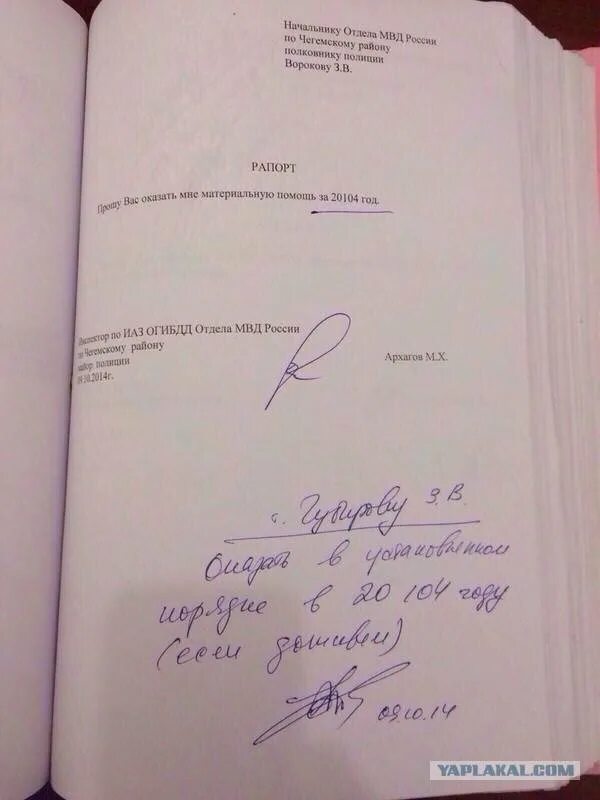 Начальнику Отдела МВД России
по Чегемскому району
полковнику полиции
Ворокову З.В.
РАПОРТ
Прошу Вас оказать мне материальную помощь за 20104 год.
Инспектор по ИАЗ ОГИБДД Отдела МВД России
по Чегемскому району
майор полиции
09.10.2014г.
Архагов М.Х.
т. З.В.
Оказать в установленном
порядке в 20104 году
(если доживем)
09.10.14
YAPLAKAL.COM